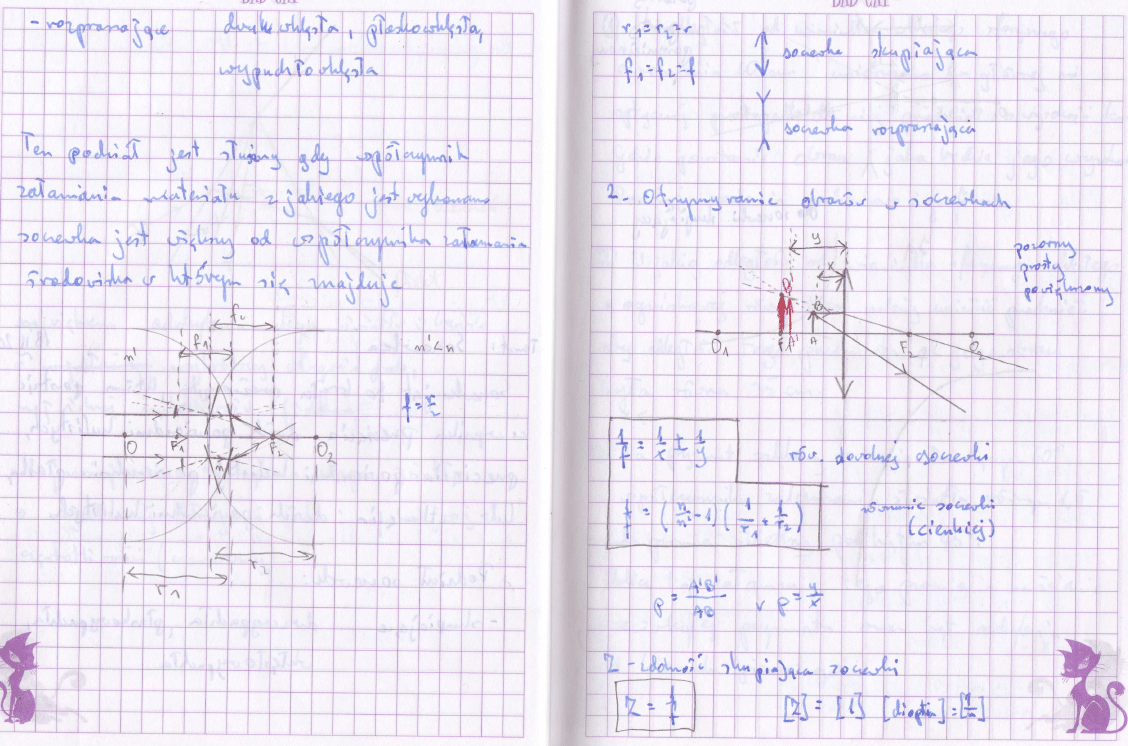 BAD CAT
- rozpraszające dwuwklęsła, płaskowklęsła,
wypukłowklęsła
Ten podział jest słuszny gdy współczynnik
załamania materiału z jakiego jest wykonana
soczewka jest większy od współczynnika załamania
środowiska w którym się znajduje
f₂
f₁
n' n'<n
f = r/2
O F₁ n F₂ O₂
r₂
r₁
BAD CAT
r₁=r₂=r
soczewka skupiająca
f₁=f₂=f
soczewka rozpraszająca
2. Otrzymywanie obrazów w soczewkach
y
pozorny
x prosty
powiększony
B'
B
O₁ F₁ A' A F₂ O₂
1/f = 1/x ± 1/y rów. dowolnej soczewki
1/f = (n/n' - 1)(1/r₁ + 1/r₂) równanie soczewki
(cienkiej)
p = A'B'/AB v p = y/x
Z - zdolność skupiająca soczewki
Z = 1/f [Z] = [1] [dioptria] = [1/m]